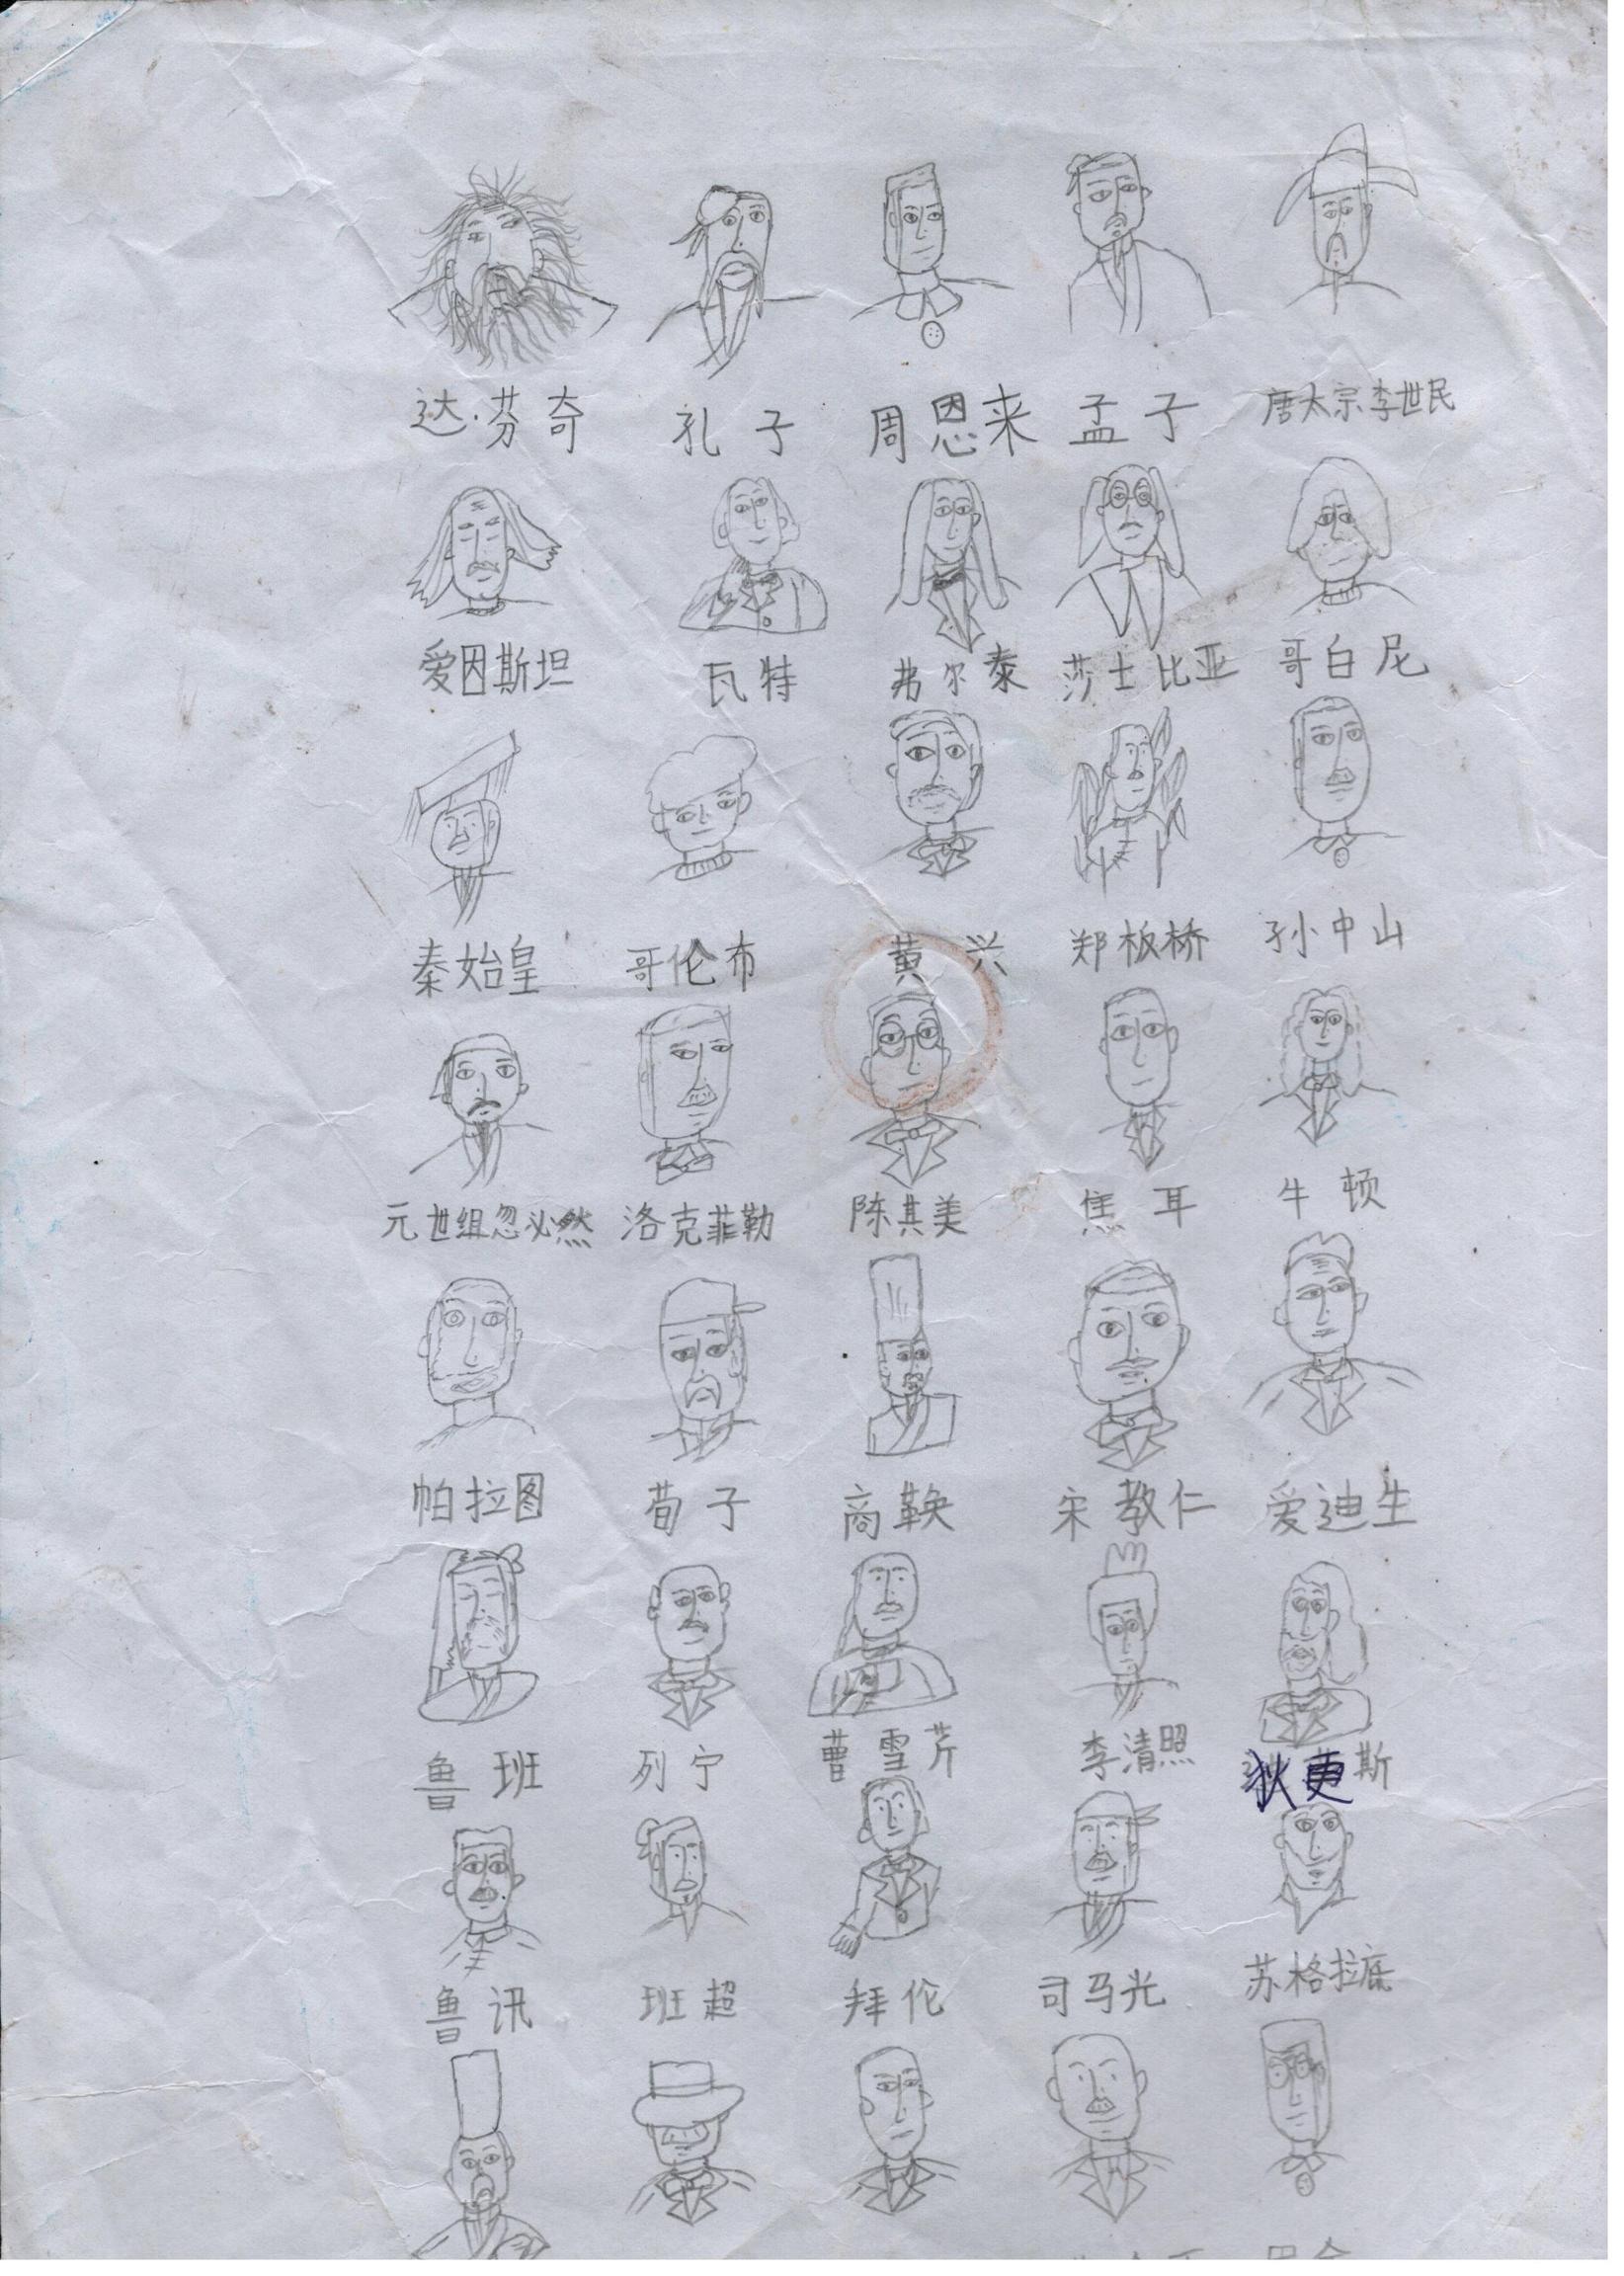 达·芬奇 孔子 周恩来 孟子 唐太宗李世民
爱因斯坦 瓦特 弗尔泰 莎士比亚 哥白尼
秦始皇 哥伦布 黄兴 郑板桥 孙中山
元世组忽必然 洛克菲勒 陈其美 焦耳 牛顿
帕拉图 荀子 商鞅 宋教仁 爱迪生
鲁班 列宁 曹雪芹 李清照 狄更斯
鲁讯 班超 拜伦 司马光 苏格拉底